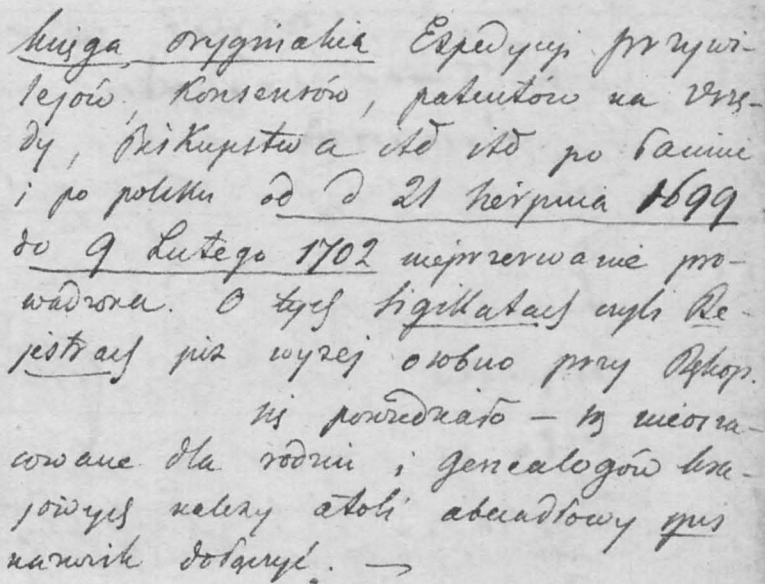 księga oryginalna Expedycyi przywi-
lejów, Konsensów, patentów na Urzę-
dy, Biskupstwa itd itd po łacinie
i po polsku od d 21 sierpnia 1699
do 9 Lutego 1702 nieprzerwanie pro-
wadzona. O tych Sigillatach czyli Re-
jestrach już wyżej osobno przy Rękop.
się powiedziało – są nieosza-
cowane dla rodzin i genealogów kra-
jowych należy atoli abecadłowy spis
nazwisk dołączyć. —